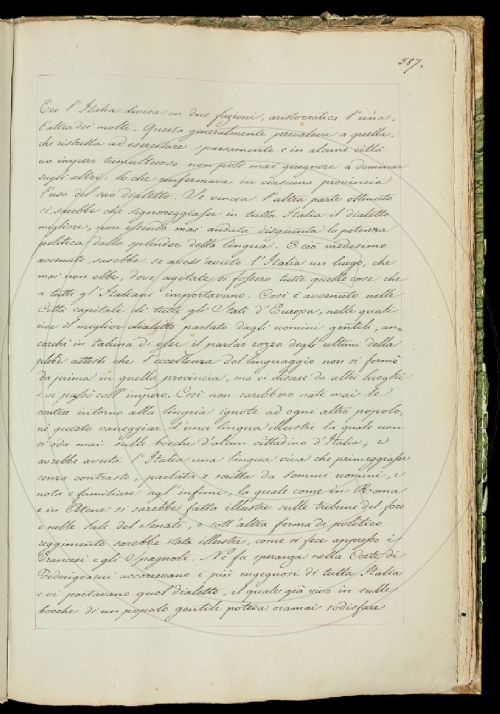 387.
Era l'Italia divisa in due fazioni, aristocratica l'una,
l'altra dei molti. Questa generalmente prevaleva a quella,
che ristretta ad esercitare in alcune città
un impero tumultuoso non potè mai giugnere a dominar
sugli altri: lo che confermava in ciascuna provincia
l'uso del suo dialetto. Se vincea l'altra parte ottenuto
si sarebbe che signoreggiasse in tutta Italia il dialetto
migliore, non essendo mai andata disgiunta la potenza
politica dallo splendor della lingua. E ciò medesimo
avvenuto sarebbe se avesse avuto l'Italia un luogo, che
mai non ebbe, dove agitate si fossero tutte quelle cose che
a tutti gl'Italiani importavano. Così è avvenuto nelle
Città capitali di tutti gli Stati d'Europa, nelle quali
vive il miglior dialetto parlato dagli uomini gentili, an-
corchè in taluna di esse il parlar rozzo degli ultimi della
plebe attesti che l'eccellenza del linguaggio non si formò
da prima in quella provincia, ma vi discese da altri luoghi
e vi passò coll'impero. Così non sarebbero nate mai le
contese intorno alla lingua ignote ad ogni altro popolo,
nè questo vaneggiar d'una lingua illustre la quale non
si ode mai sulle bocche d'alcun cittadino d'Italia, e
avrebbe avuta l'Italia una lingua viva che primeggiasse
senza contrasto, parlata e scritta da sommi uomini, e
nota e familiare agl'infimi, la quale come in Roma
e in Atene si sarebbe fatta illustre sulle tribune del foro
e nelle sale del Senato, e sott'altra forma di politico
reggimento sarebbe stata illustre, come si fece appresso i
Francesi e gli Spagnoli. Ne fu speranza nella Corte di
Federigo cui accorrevano i più ingegnosi di tutta Italia
e vi portavano quel dialetto, il quale già vivo in sulle
bocche di un popolo gentile poteva oramai sodisfare